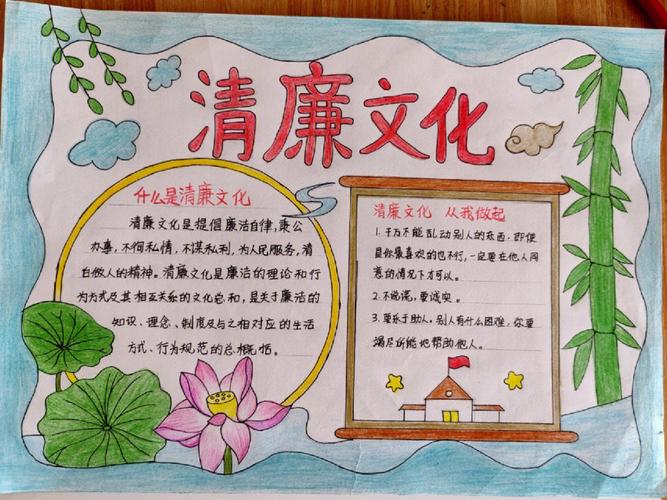 清廉文化
什么是清廉文化
清廉文化是提倡廉洁自律,秉公
办事,不徇私情,不谋私利,为人民服务,清
白做人的精神。清廉文化是廉洁的理论和行
为方式及其相互关系的文化总和,是关于廉洁的
知识、理念、制度及与之相对应的生活
方式、行为规范的总概括。
清廉文化 从我做起
1.千万不能乱动别人的东西,即使
是你最喜欢的也不行,一定要在他人同
意的情况下才可以。
2.不说谎,要诚实。
3.要乐于助人,别人有什么困难,你要
竭尽所能地帮助他人。